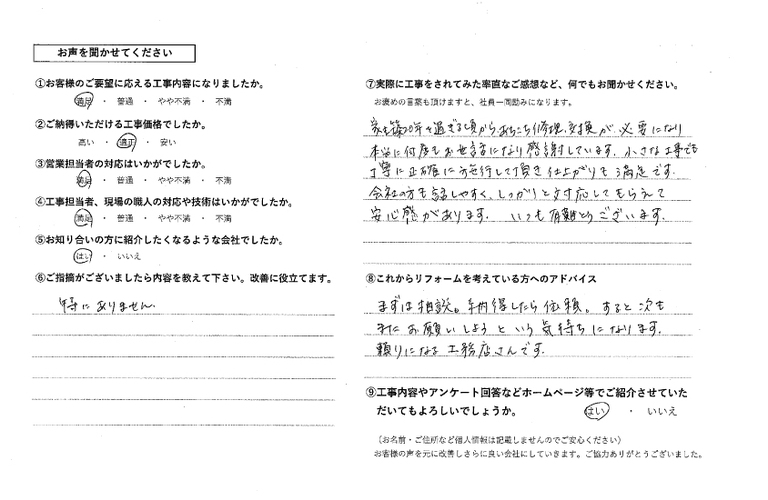 お声を聞かせてください
①お客様のご要望に応える工事内容になりましたか。
満足 ・ 普通 ・ やや不満 ・ 不満
②ご納得いただける工事価格でしたか。
高い ・ 適正 ・ 安い
③営業担当者の対応はいかがでしたか。
満足 ・ 普通 ・ やや不満 ・ 不満
④工事担当者、現場の職人の対応や技術はいかがでしたか。
満足 ・ 普通 ・ やや不満 ・ 不満
⑤お知り合いの方に紹介したくなるような会社でしたか。
はい ・ いいえ
⑥ご指摘がございましたら内容を教えて下さい。改善に役立てます。
特にありません
⑦実際に工事をされてみた率直なご感想など、何でもお聞かせください。
お褒めの言葉も頂けますと、社員一同励みになります。
過ぎる頃からあちこち修理、交換が必要になり
本当に何度もお世話になり感謝しています。小さな工事でも
丁寧に正確に施行して頂き仕上がりも満足です。
会社の方も話しやすく、しっかりと対応してもらえて
安心感があります。 いつも有難とうございます。
⑧これからリフォームを考えている方へのアドバイス
まずは相談。納得したら依頼。すると次も
またお願いしようという気持ちになります。
頼りになる工務店さんです。
⑨工事内容やアンケート回答などホームページ等でご紹介させていた
だいてもよろしいでしょうか。 はい ・ いいえ
（お名前・ご住所など個人情報は記載しませんのでご安心ください）
お客様の声を元に改善しさらに良い会社にしていきます。ご協力ありがとうございました。